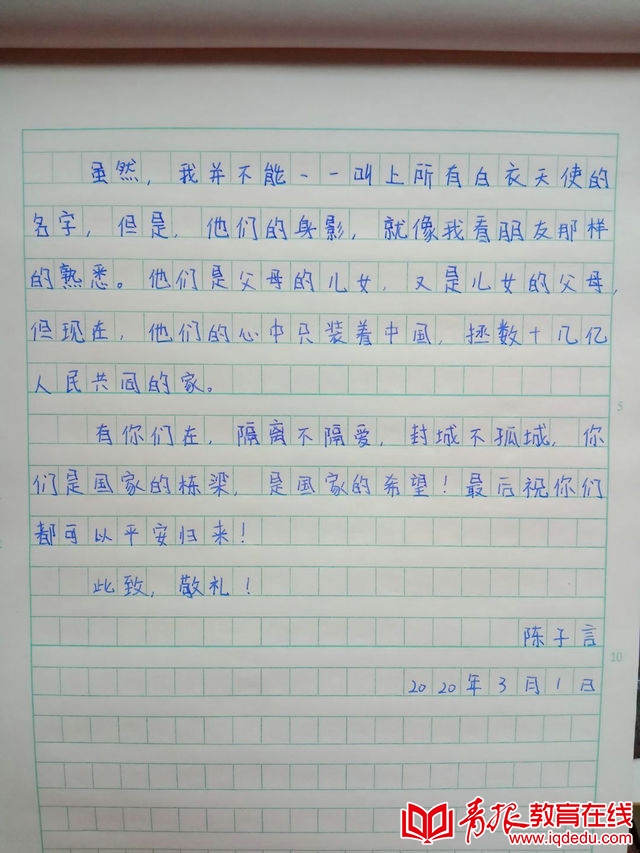 虽然，我并不能一一叫上所有白衣天使的
名字，但是，他们的身影，就像我看朋友那样
的熟悉。他们是父母的儿女，又是儿女的父母，
但现在，他们的心中只装着中国，拯数十几亿
人民共同的家。
5
有你们在，隔离不隔爱，封城不孤城，你
们是国家的栋梁，是国家的希望！最后祝你们
都可以平安归来！
此致，敬礼！
陈子言
10
2020年3月1日
青报教育在线
www.iqdedu.com